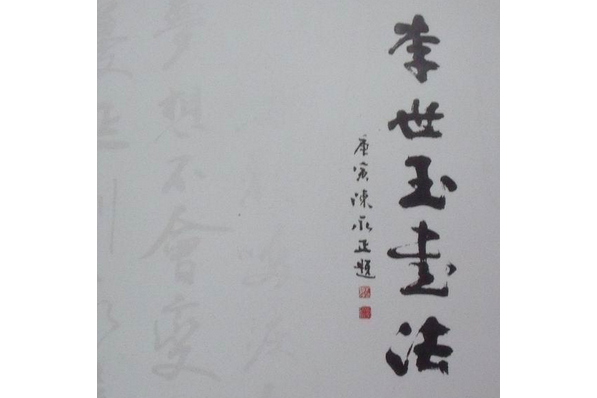 李世玉書法
庚寅陳永正題
夢想不會變